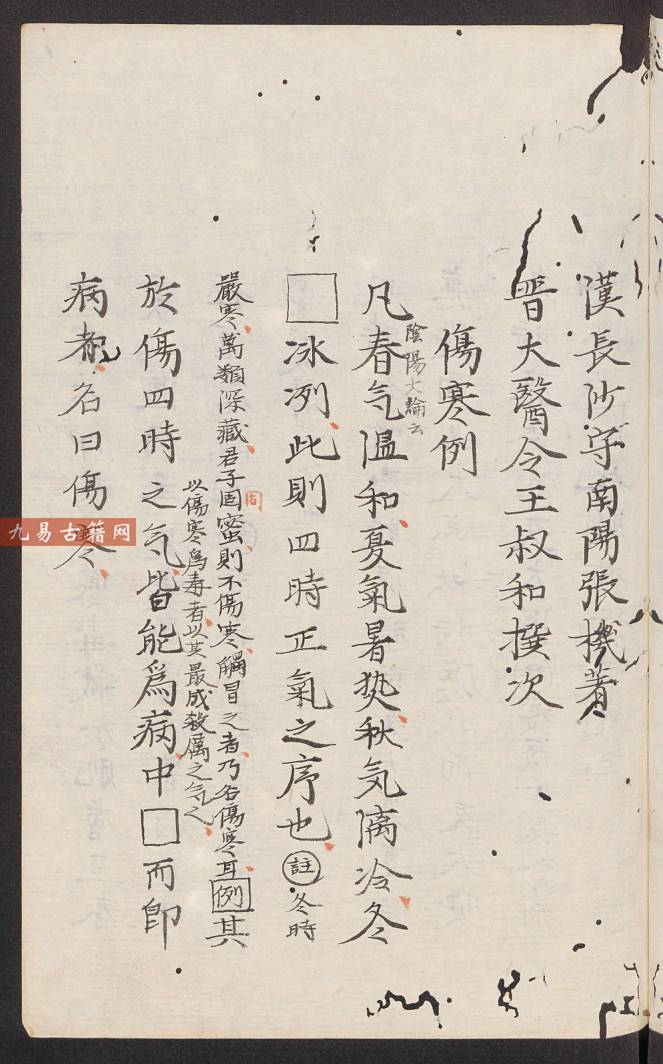 漢長沙守南陽張機著
晋大醫令王叔和撰次
傷寒例
陰陽大論云
凡春气温和夏氣暑𤍠秋気凉冷冬
□冰冽此則四時正氣之序也註冬時
嚴寒萬類深藏君子固蜜則不傷寒觸冒之者乃名傷寒耳例其
於傷四時之气皆能爲病中□而即
以傷寒爲毒者以其最成殺厲之气也
病者名曰傷寒
九易古籍网